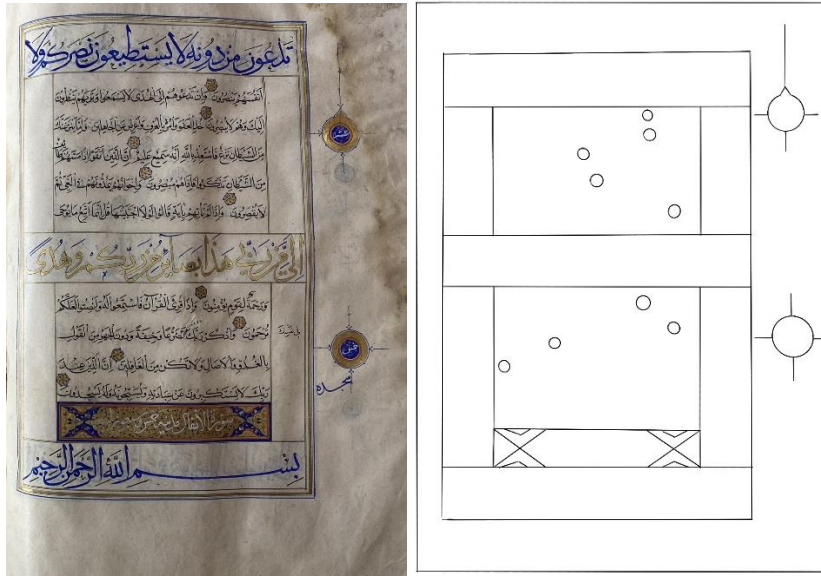 تدعون من دونه لا يستطيعون نصركم ولا
انفسهم ينصرون وان تدعوهم الى الهدى لا يسمعوا وتريهم ينظرون
اليك وهم لا يبصرون خذ العفو وامر بالعرف واعرض عن الجاهلين واما ينزغنك
عشر
من الشيطان نزغ فاستعذ بالله انه سميع عليم ان الذين اتقوا اذا مسهم طائف
من الشيطان تذكروا فاذا هم مبصرون واخوانهم يمدونهم في الغي ثم
لا يقصرون واذا لم تاتهم باية قالوا لولا اجتبيتها قل انما اتبع ما يوحى
الي من ربي هذا بصائر من ربكم وهدى
ورحمة لقوم يؤمنون واذا قرئ القرآن فاستمعوا له وانصتوا لعلكم
ترحمون واذكر ربك تضرعا وخيفة ودون الجهر من القول
خمس
بالغدو والاصال ولا تكن من الغافلين ان الذين عند
سجده
ربك لا يستكبرون عن عبادته ويسبحونه وله يسجدون
سورة الانفال مدنية خمس
بسم الله الرحمن الرحيم